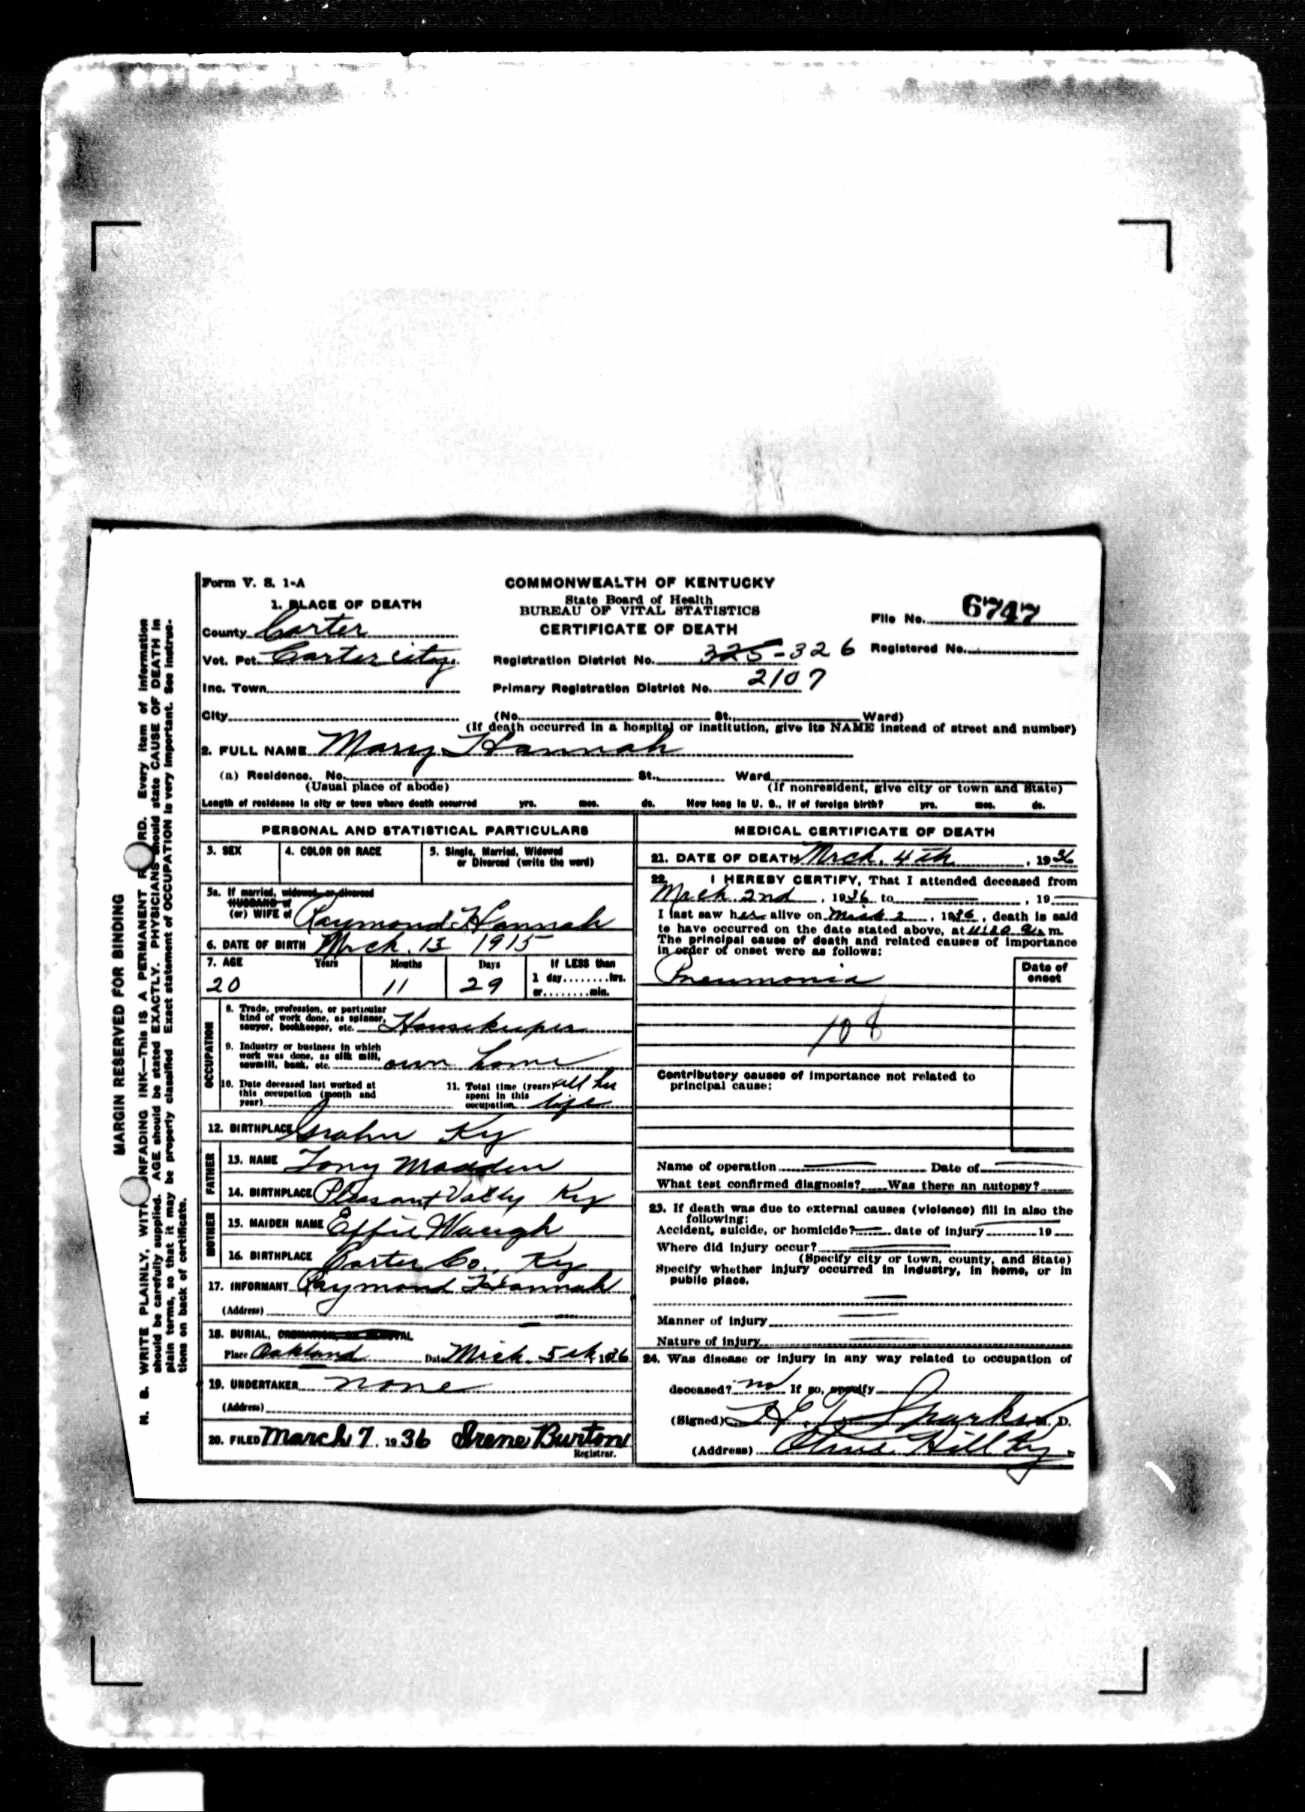 Form V. S. 1-A
COMMONWEALTH OF KENTUCKY
State Board of Health
BUREAU OF VITAL STATISTICS
CERTIFICATE OF DEATH
File No. 6747
Registered No.
1. PLACE OF DEATH
County Carter
Vot. Pct. Carter city.
Registration District No. 325-326
Inc. Town
Primary Registration District No. 2107
City (No. St., Ward)
(If death occurred in a hospital or institution, give its NAME instead of street and number)
2. FULL NAME Mary Hannah
(a) Residence. No. St., Ward
(Usual place of abode) (If nonresident, give city or town and State)
Length of residence in city or town where death occurred yrs. mos. ds. How long in U. S., if of foreign birth? yrs. mos. ds.
PERSONAL AND STATISTICAL PARTICULARS
3. SEX
4. COLOR OR RACE
5. Single, Married, Widowed
or Divorced (write the word)
5a. If married, widowed, or divorced
HUSBAND of
(or) WIFE of Raymond Hannah
6. DATE OF BIRTH Mrch. 13 1915
7. AGE Years Months Days If LESS than
1 day hrs.
20 11 29 or min.
OCCUPATION
8. Trade, profession, or particular
kind of work done, as spinner,
sawyer, bookkeeper, etc. Housekeeper
9. Industry or business in which
work was done, as silk mill,
sawmill, bank, etc. own home
10. Date deceased last worked at
this occupation (month and
year)
11. Total time (years) all her
spent in this
occupation life
12. BIRTHPLACE Grahn Ky
FATHER
13. NAME Tony Madden
14. BIRTHPLACE Pleasant Vally Ky
MOTHER
15. MAIDEN NAME Effie Waugh
16. BIRTHPLACE Carter Co., Ky
17. INFORMANT Raymond Hannah
(Address)
18. BURIAL, CREMATION, OR REMOVAL
Place Oakland Date Mrch. 5th, 1936
19. UNDERTAKER none
(Address)
20. FILED March 7, 1936 Irene Burton
Registrar.
MEDICAL CERTIFICATE OF DEATH
21. DATE OF DEATH Mrch. 4th, 1936
22. I HEREBY CERTIFY, That I attended deceased from
Mrch. 2nd, 1936 to , 19
I last saw her alive on Mrch 2, 1936, death is said
to have occurred on the date stated above, at m.
The principal cause of death and related causes of importance
in order of onset were as follows:
Date of
onset
Pneumonia
108
Contributory causes of importance not related to
principal cause:
Name of operation Date of
What test confirmed diagnosis? Was there an autopsy?
23. If death was due to external causes (violence) fill in also the
following:
Accident, suicide, or homicide? date of injury 19
Where did injury occur?
(Specify city or town, county, and State)
Specify whether injury occurred in industry, in home, or in
public place.
Manner of injury
Nature of injury
24. Was disease or injury in any way related to occupation of
deceased? no If so, specify
(Signed) Sparks, M. D.
(Address) Olive Hill Ky
MARGIN RESERVED FOR BINDING
N. B. WRITE PLAINLY, WITH UNFADING INK—This IS A PERMANENT RECORD. Every item of information
should be carefully supplied. AGE should be stated EXACTLY. PHYSICIANS should state CAUSE OF DEATH in
plain terms, so that it may be properly classified. Exact statement of OCCUPATION is very important. See instruc-
tions on back of certificate.